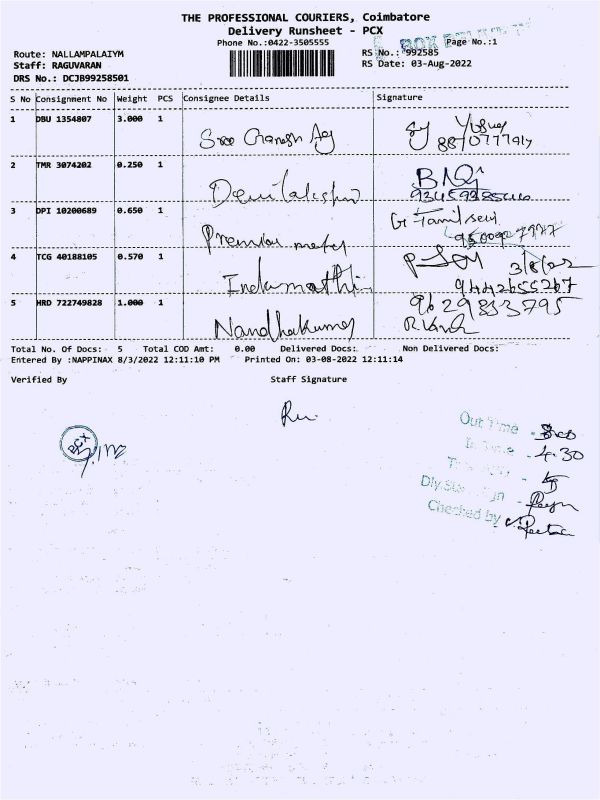 THE PROFESSIONAL COURIERS, Coimbatore
Delivery Runsheet - PCX
Phone No.:0422-3505555 Page No.:1
Route: NALLAMPALAIYM RS No.: 992585
Staff: RAGUVARAN RS Date: 03-Aug-2022
DRS No.: DCJB99258501
S No Consignment No Weight PCS Consignee Details Signature
1 DBU 1354807 3.000 1 Sree Ganesh Ag
2 TMR 3074202 0.250 1 Devi lakshmi
3 DPI 10200689 0.650 1 Premier metal G Tamilselvi
4 TCG 40188105 0.570 1 Indumathi 3/8/22
9442655267
5 HRD 722749828 1.000 1 Nandhakumar 9629833795
Total No. Of Docs: 5 Total COD Amt: 0.00 Delivered Docs: Non Delivered Docs:
Entered By :NAPPINAX 8/3/2022 12:11:10 PM Printed On: 03-08-2022 12:11:14
Verified By Staff Signature
PCX
Out Time
In Time - 4.30
Checked by